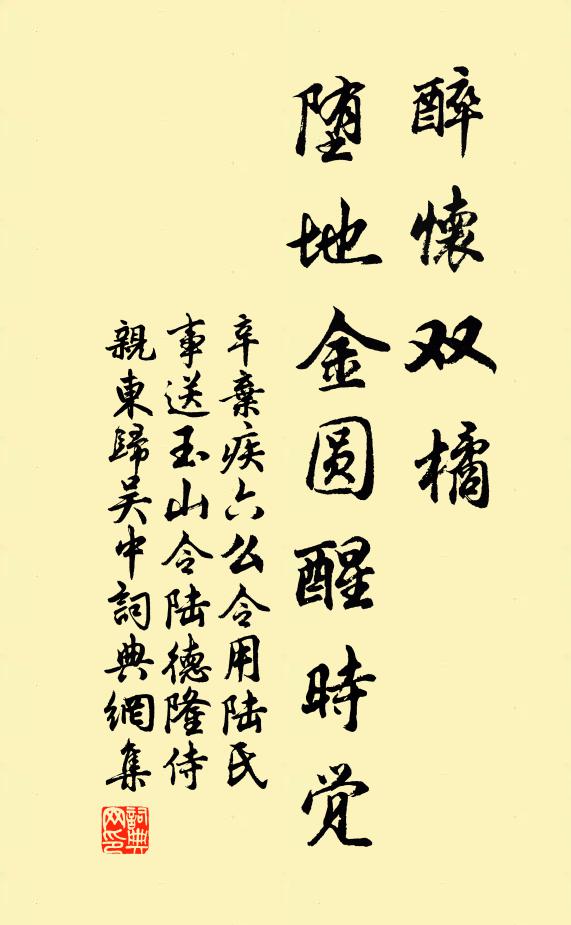 醉懷双橘
堕地金圆醒時觉
辛棄疾六么令用陆氏
事送玉山令陆德隆侍
親東歸吴中詞典網集
詞典网印